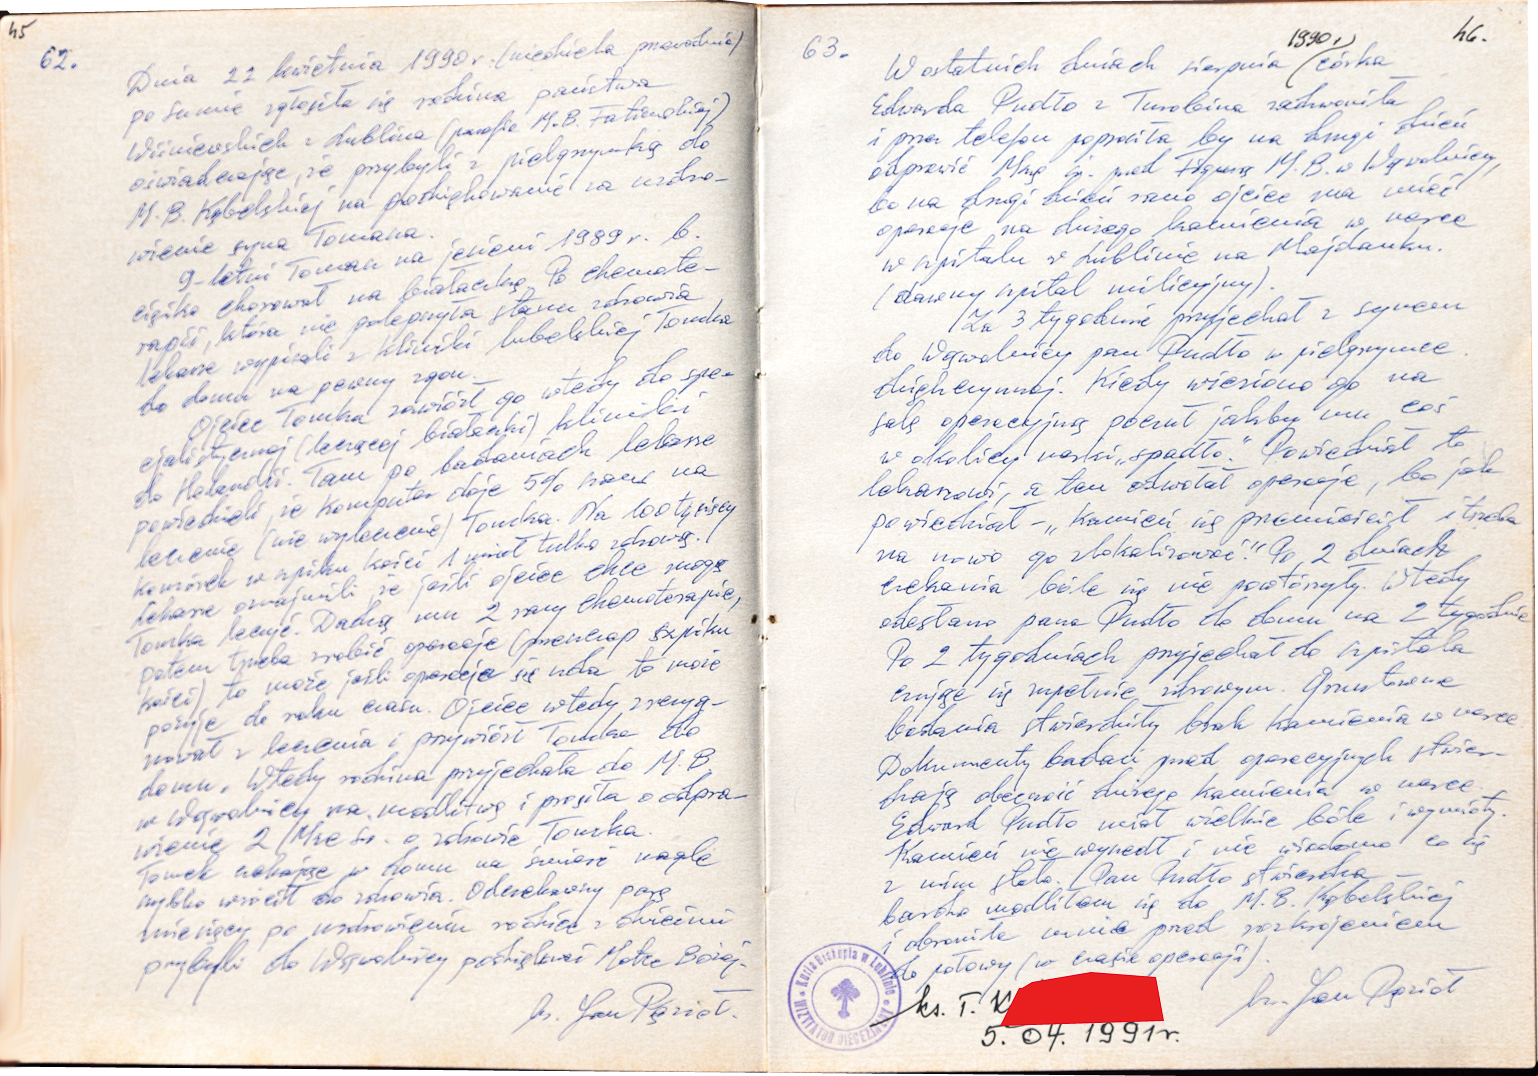 45
62.
Dnia 22 kwietnia 1990 r. (niedziela przewodnia)
po sumie zgłosiła się rodzina państwa
Wiśniewskich z Lublina (parafia M.B. Fatimskiej)
oświadczając, że przybyli z pielgrzymką do
M.B. Kębelskiej na podziękowanie za uzdro-
wienie syna Tomana.
9-letni Toman na jesieni 1989 r. b.
ciężko chorował na białaczkę. Po chemote-
rapii, która nie polepszyła stanu zdrowia
lekarze wypisali z kliniki lubelskiej Tomka
do domu na pewny zgon.
Ojciec Tomka zawiózł go wtedy do spe-
cjalistycznej (leczącej białaczki) kliniki
do Holandii. Tam po badaniach lekarze
powiedzieli, że komputer daje 5% szans na
leczenie (nie wyleczenie) Tomka. Na 100 tysięcy
komórek w szpiku kości 1 miał tylko zdrową.
Lekarze oznajmili, że jeśli ojciec chce mogą
Tomka leczyć. Dadzą mu 2 razy chemioterapię,
potem trzeba zrobić operację (przeszczep szpiku
kości), to może jeśli operacja się uda to może
pożyje do roku czasu. Ojciec wtedy zrezyg-
nował z leczenia i przywiózł Tomka do
domu. Wtedy rodzina przyjechała do M.B.
w Wąwolnicy na modlitwę i prosiła o odpra-
wienie 2 Msze św. o zdrowie Tomka.
Tomek czekając w domu na śmierć nagle
szybko wrócił do zdrowia. Odczekawszy parę
miesięcy po uzdrowieniu rodzice z dziećmi
przybyli do Wąwolnicy podziękować Matce Bożej.
ks. Jan Pęzioł.
46.
63.
1990 r.
W ostatnich dniach sierpnia córka
Edwarda Pudło z Turobina zadzwoniła
i przez telefon poprosiła by na drugi dzień
odprawić Mszę św. przed Figurą M.B. w Wąwolnicy,
bo na drugi dzień rano ojciec ma mieć
operację na dużego kamienia w nerce
w szpitalu w Lublinie na Majdanku.
(dawny szpital milicyjny).
Za 3 tygodnie przyjechał z synem
do Wąwolnicy pan Pudło w pielgrzymce
dziękczynnej. Kiedy wieziono go na
salę operacyjną poczuł jakby mu coś
w okolicy nerki „spadło". Powiedział to
lekarzowi, a ten odwołał operację, bo jak
powiedział – „Kamień się przemieścił i trzeba
na nowo go zlokalizować." Po 2 dniach
czekania bóle się nie powtórzyły. Wtedy
odesłano pana Pudło do domu na 2 tygodnie
Po 2 tygodniach przyjechał do szpitala
czując się zupełnie zdrowym. Gruntowne
badania stwierdziły brak kamienia w nerce.
Dokumenty badań przed operacyjnych stwier-
dzają obecność dużego kamienia w nerce.
Edward Pudło miał wielkie bóle i wymioty.
Kamień nie wyszedł i nie wiadomo co się
z nim stało. Pan Pudło stwierdza
bardzo modliłam się do M.B. Kębelskiej
i obroniła mnie przed rozkrojeniem
do połowy (w czasie operacji).
ks. Jan Pęzioł
Kuria Biskupia w Lublinie
WIZYTATOR DIECEZJALNY
ks. T. K
5. 04. 1991 r.